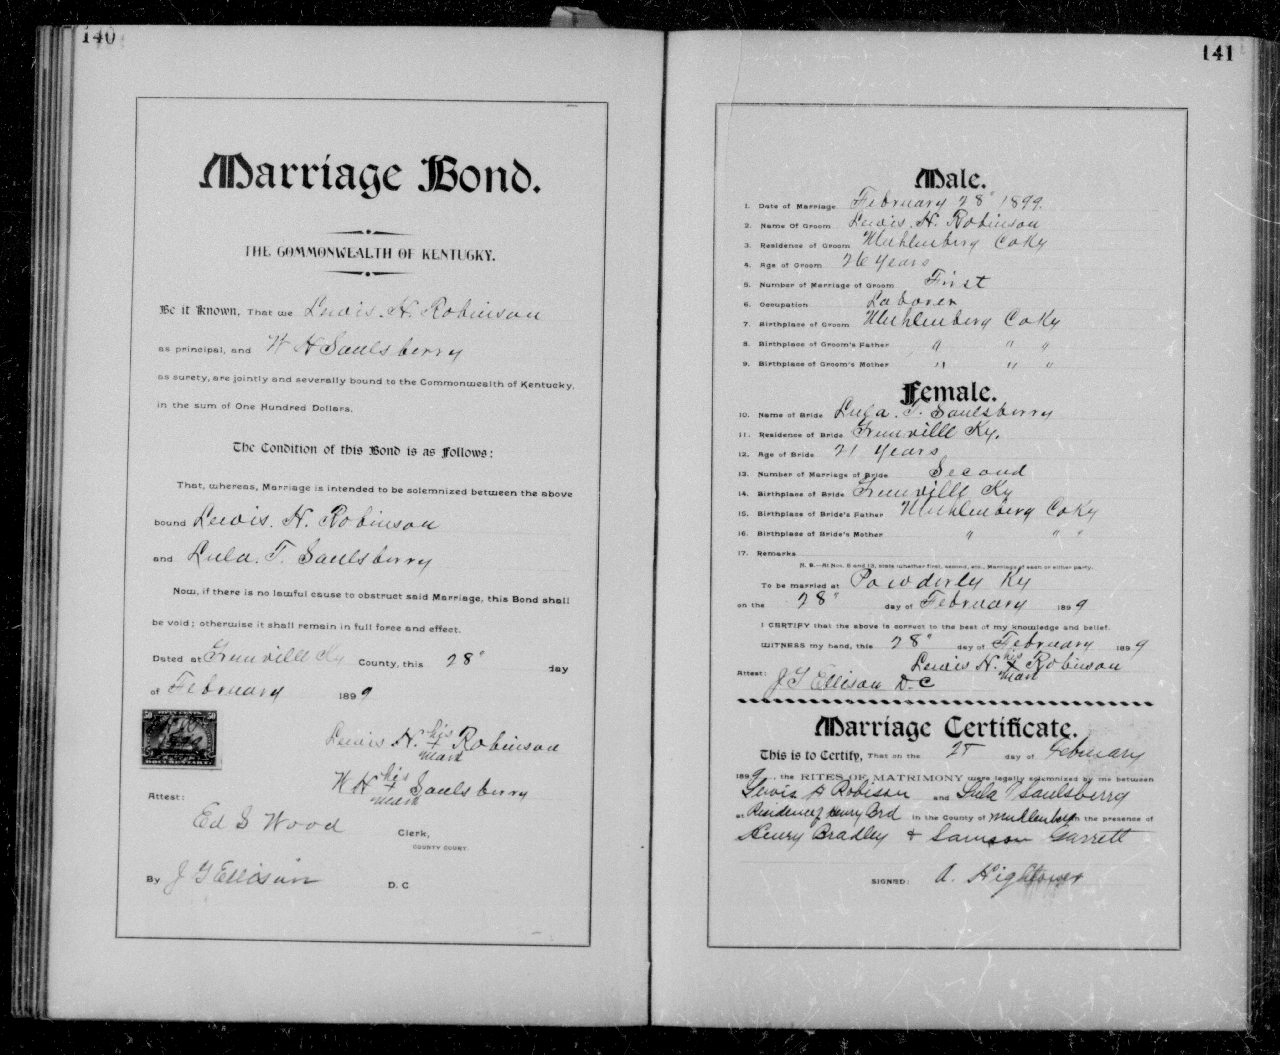 140
Marriage Bond.
THE COMMONWEALTH OF KENTUCKY.
Be it Known, That we Lewis. H. Robinson
as principal, and W H Saulsberry
as surety, are jointly and severally bound to the Commonwealth of Kentucky,
in the sum of One Hundred Dollars.
The Condition of this Bond is as Follows:
That, whereas, Marriage is intended to be solemnized between the above
bound Lewis. H. Robinson
and Lula. T. Saulsberry
Now, if there is no lawful cause to obstruct said Marriage, this Bond shall
be void; otherwise it shall remain in full force and effect.
Dated at Greenville Ky County, this 28" day
of February 1899
Lewis. H. his + mark Robinson
W H his + mark Saulsberry
Attest:
Ed S Wood Clerk,
COUNTY COURT.
By J G Ellison D. C
141
Male.
1. Date of Marriage February 28" 1899.
2. Name Of Groom Lewis. H. Robinson
3. Residence of Groom Muhlenberg Co Ky
4. Age of Groom 26 Years
5. Number of Marriage of Groom First
6. Occupation Laborer
7. Birthplace of Groom Muhlenberg Co Ky
8. Birthplace of Groom's Father " " "
9. Birthplace of Groom's Mother " " "
Female.
10. Name of Bride Lula. T. Saulsberry
11. Residence of Bride Greenville Ky.
12. Age of Bride 21 Years
13. Number of Marriage of Bride Second
14. Birthplace of Bride Greenville Ky
15. Birthplace of Bride's Father Muhlenberg Co Ky
16. Birthplace of Bride's Mother " " "
17. Remarks
N. B.—At Nos. 5 and 13, state whether first, second, etc., Marriage of each or either party.
To be married at Powderly Ky
on the 28" day of February 1899
I CERTIFY that the above is correct to the best of my knowledge and belief.
WITNESS my hand, this 28" day of February 1899
Lewis H. his + mark Robinson
Attest: J G Ellison D. C
Marriage Certificate.
This is to Certify, That on the 28 day of February
1899, the RITES OF MATRIMONY were legally solemnized by me between
Lewis H Robison and Lula T Saulsberry
at Residence of Henry Brd in the County of Muhlenberg in the presence of
Henry Bradley + Samson Garrett
SIGNED: A. Hightower